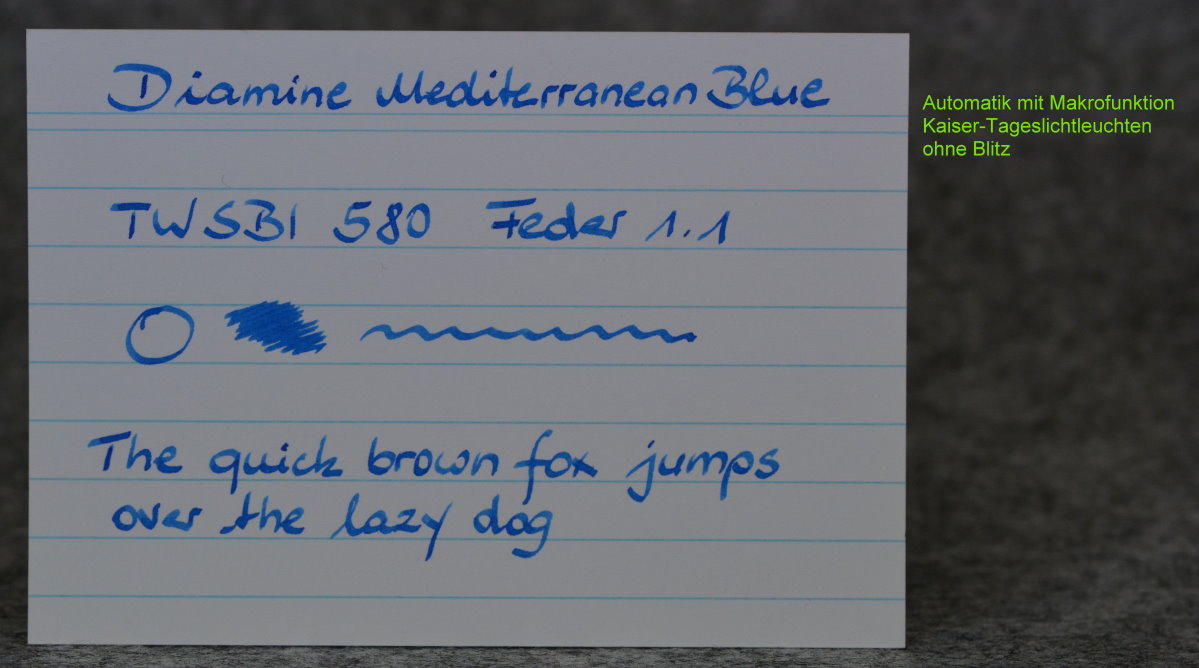 Diamine Mediterranean Blue
Automatik mit Makrofunktion
Kaiser-Tageslichtleuchten
ohne Blitz
TWSBI 580 Feder 1.1
The quick brown fox jumps
over the lazy dog